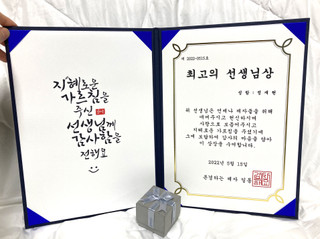 지혜로운
가르침을
주신
선생님께
감사함을
전해요
제 2022-0515호
최고의 선생님상
성함 : 정재현
위 선생님은 언제나 제자들을 위해
애써주시고 헌신하시며
사랑으로 보듬어주시고
지혜로운 가르침을 주셨기에
그에 보답하여 감사의 마음을 담아
이 상장을 수여합니다.
2022년 5월 15일
존경하는 제자 일동